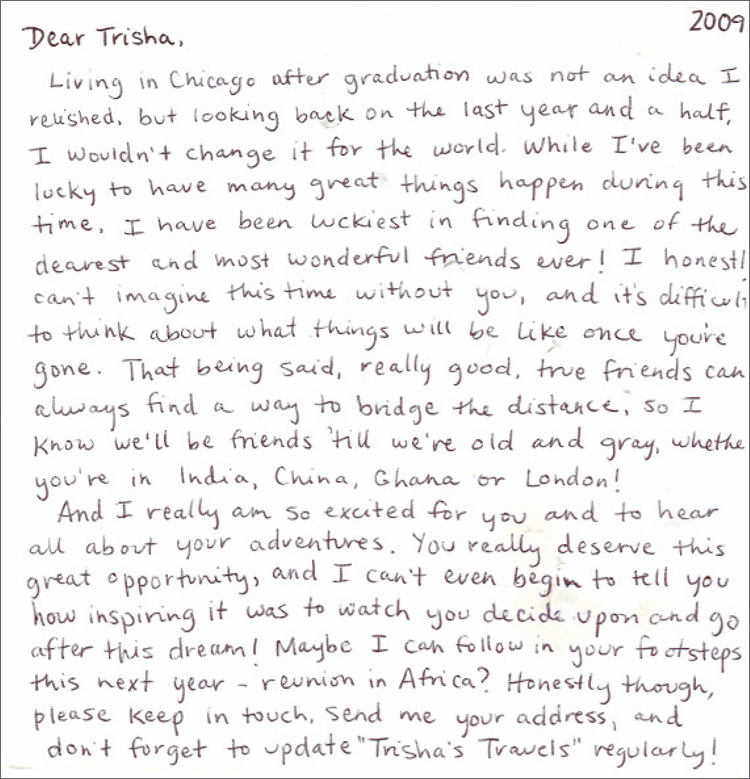 2009
Dear Trisha,
Living in Chicago after graduation was not an idea I
relished, but looking back on the last year and a half,
I wouldn't change it for the world. While I've been
lucky to have many great things happen during this
time, I have been luckiest in finding one of the
dearest and most wonderful friends ever! I honestl
can't imagine this time without you, and it's difficult
to think about what things will be like once you're
gone. That being said, really good, true friends can
always find a way to bridge the distance, so I
know we'll be friends 'till we're old and gray, whethe
you're in India, China, Ghana or London!
And I really am so excited for you and to hear
all about your adventures. You really deserve this
great opportunity, and I can't even begin to tell you
how inspiring it was to watch you decide upon and go
after this dream! Maybe I can follow in your footsteps
this next year - reunion in Africa? Honestly though,
please keep in touch, send me your address, and
don't forget to update "Trisha's Travels" regularly!